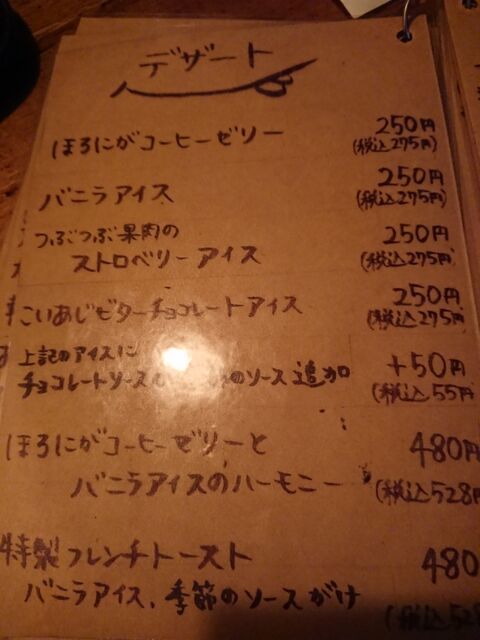 デザート
ほろにがコーヒーゼリー 250円
(税込275円)
バニラアイス 250円
(税込275円)
つぶつぶ果肉の 250円
ストロベリーアイス (税込275円)
こいあじビターチョコレートアイス 250円
(税込275円)
上記のアイスに +50円
チョコレートソース のソース追加 (税込55円
ほろにがコーヒーゼリーと 480円
バニラアイスのハーモニー (税込528円
特製フレンチトースト 480
バニラアイス、季節のソースがけ (税込528